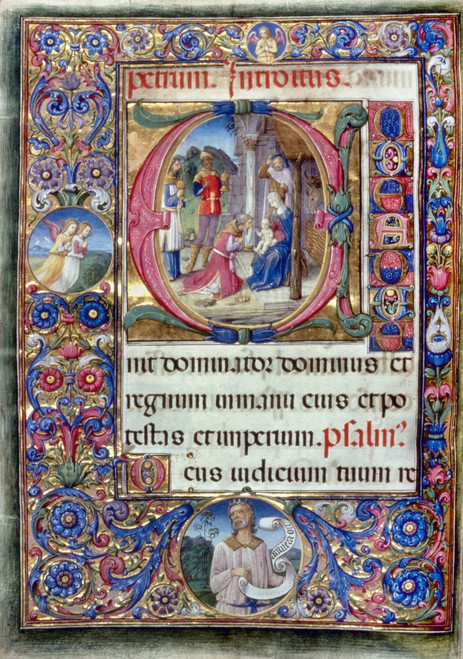 petrum. Introitus.
E
nit dominator dominus et
regnum inmanu eius et po
testas et imperium. psalm
Deus iudicium tuum re